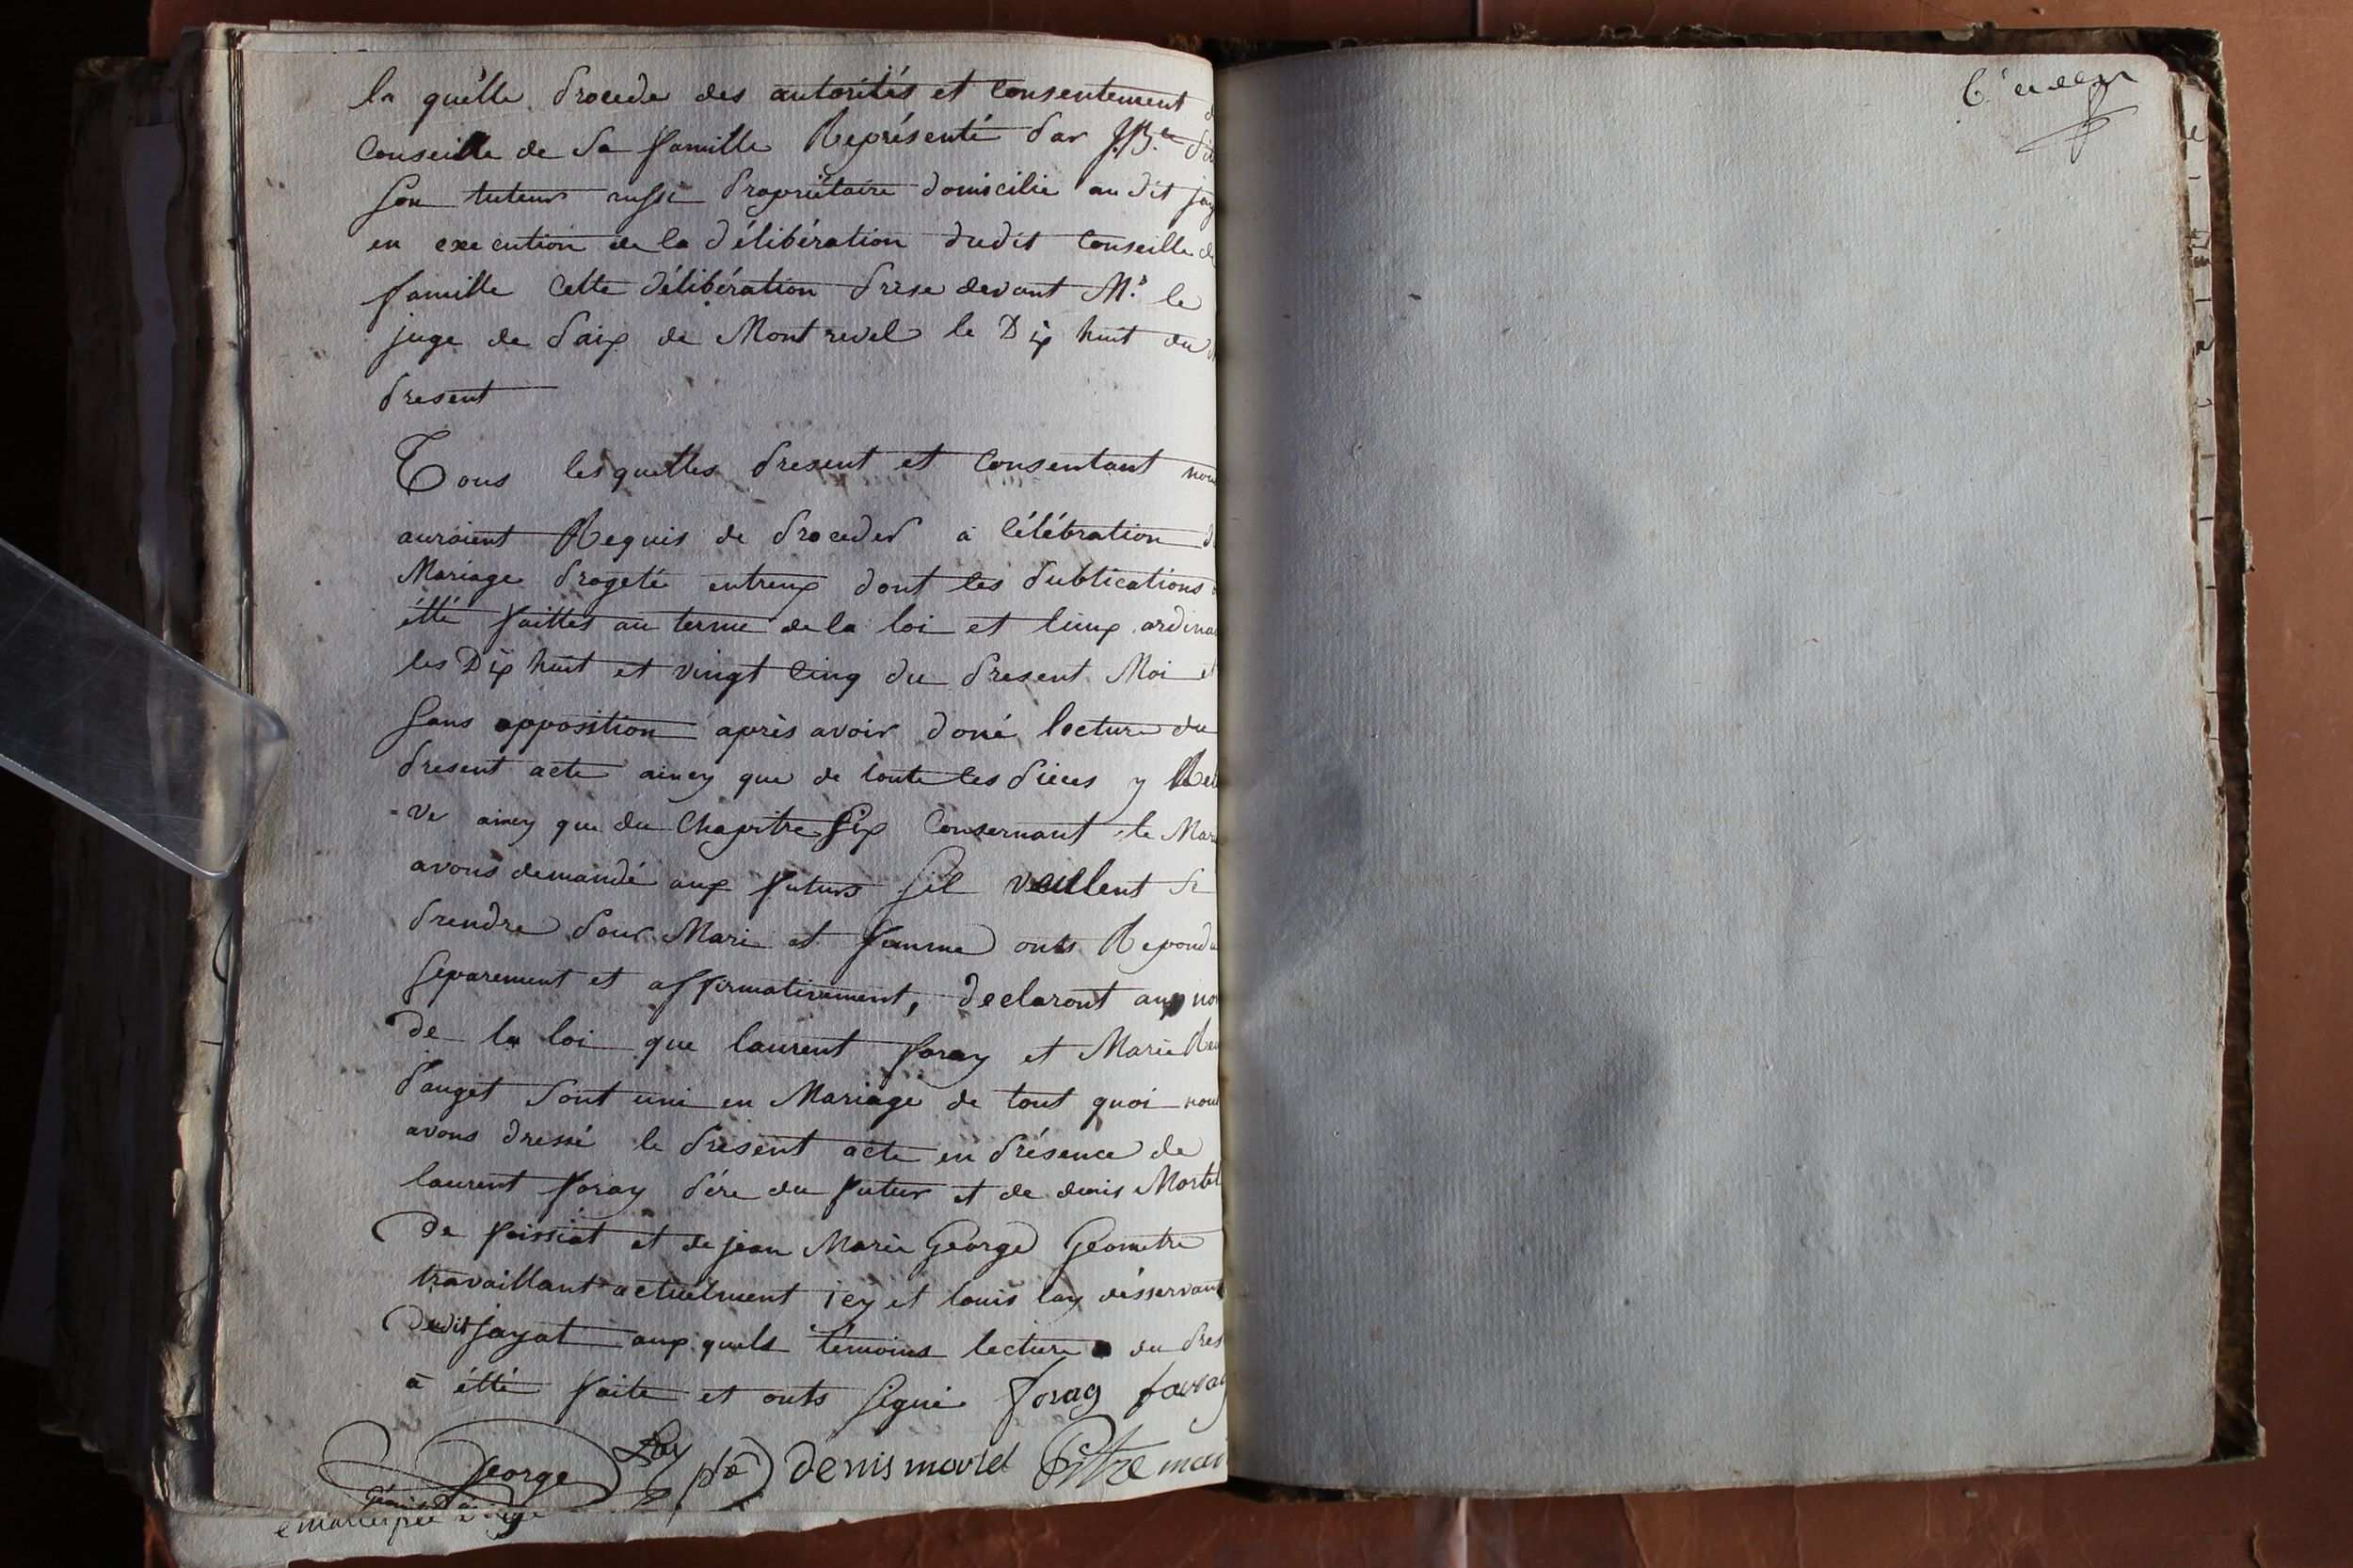 la quelle procede des autorités et Consentement
Conseille de Sa famille Représenté par J.Bte
Son tuteur aussi propriétaire domicilie au dit jay
en execution de la délibération dudit Conseille de
famille Cette délibération prise devant Mr. le
juge de paix de Montrevel le Dix huit du
present
Tous lesquelles present et Consentant nous
auroient Requis de proceder à Célébration d
Mariage progeté entreux dont les publications
étté faittes au terme de la loi et lieux ordina
les Dix huit et vingt Cinq du present Moi et
Sans opposition après avoir doné lecture du
present acte aincy que de toute les pieces y Rela
=ve aincy que du Chapitre Six Consernant le Mari
avons demandé aux futurs Sil veullent Se
prendre pour Mari et femme onts Repondu
Separement et affirmativement, declaront aux no
de la loi que laurent foray et Marie Rei
pauget Sont uni en Mariage de tout quoi nous
avons dressé le présent acte en présence de
laurent foray père du futur et de denis Mortel
de foissiat et de jean Marie George Géometre
travaillant actuelment icy et louis lay désservant
dudit jayat aux quels témoins lecture du pres
à étté faite et onts Signé foray foray
George Lay ptre denis mortel Pitre mai